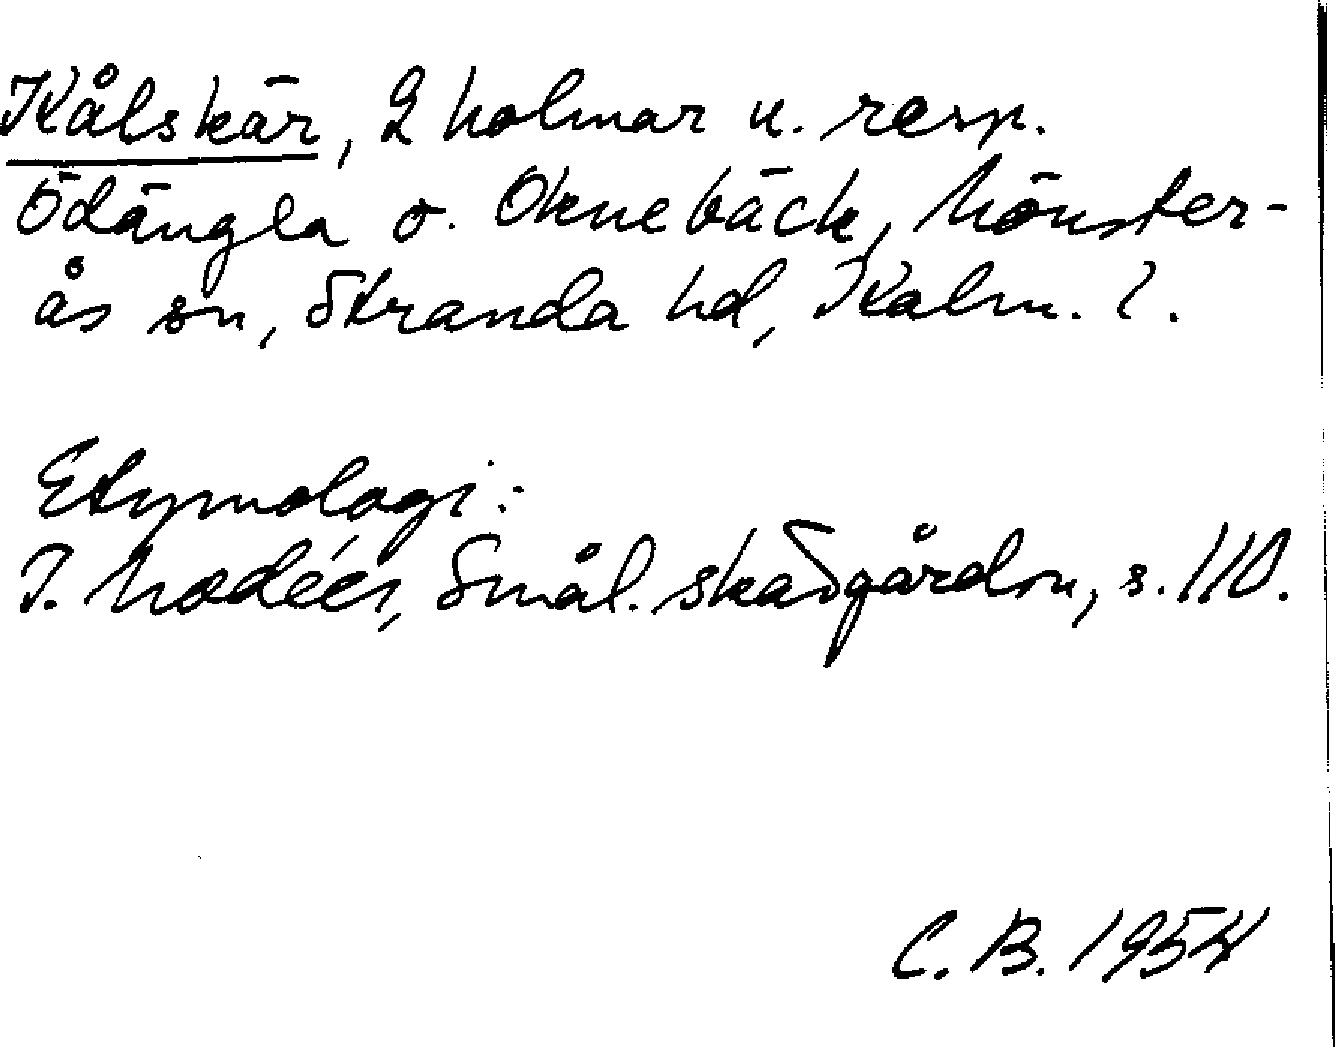 Kålskär, 2 holmar u. resp.
Ödängla o. Oknebäck, Mönster-
ås sn, Stranda hd, Kalm. l.
Etymologi:
I. Modéer, Smål. skärgården, s. 110.
C. B. 1954